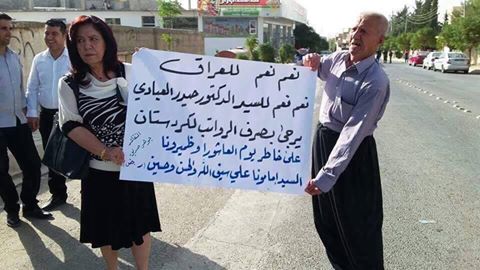 نعم نعم للعراق
نعم نعم للسيد الدكتور حيدر العبادي
يرجى بصرف الرواتب لكردستان
على خاطر يوم العاشورا وظهيرونا
السيد امامونا علي سيف الله والحسن وحسين